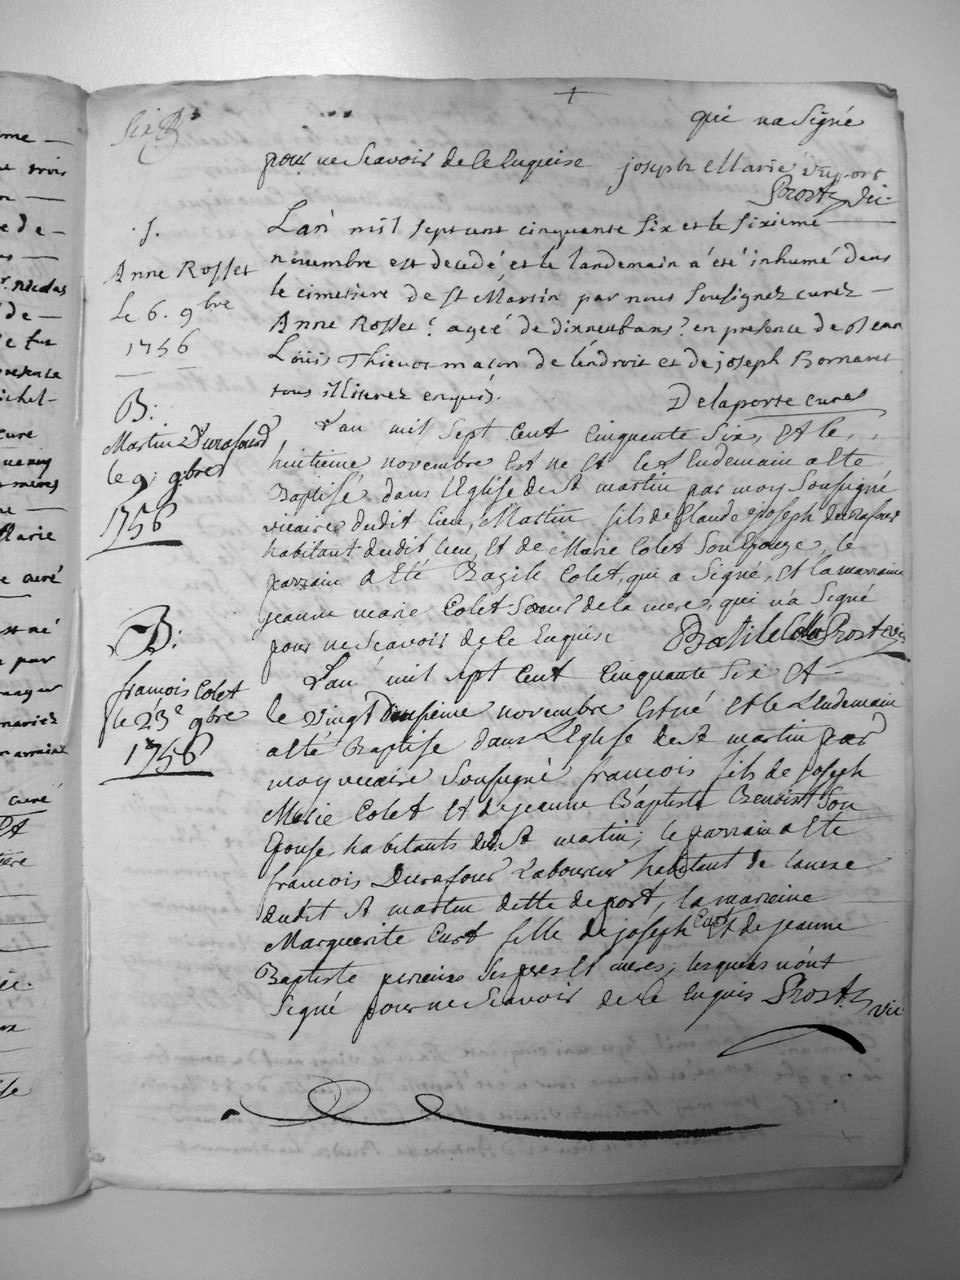 qui na Signé
pour ne Scavoir de ce Enquise joseph Marie
Prost vic.
.S.
Anne Rosset
Le 6. 9bre
1756
Lan mil sept cent cinquante Six et le Sixieme
novembre est decedé et le landemain a été inhumé dans
le cimetiere de St Martin par nous Soussignez curez
Anne Rosset agée de dixneuf ans en presence de
Loüis Thievor maçon de lendroit et de joseph Bornaret
tous illiterez enquis.
Delaporte curé
B:
Martin Durafourd
le 9. 9bre
1756
Lan mil Sept Cent Cinquente Six, Et le,
huitieme novembre Est ne Et le Lendemain a été
Baptisé dans l'Eglise de St martin par moy Soussigné
vicaire dudit lieu, Martin fils de Claude joseph Durafour
habitant dudit lieu, Et de Marie Colet Son Epouze, le
parrain a Eté Bazile Colet, qui a Signé, Et la marraine
jeanne marie Colet Soeur de la mere, qui n'a Signé
pour ne Scavoir de ce Enquise Basile Colet Prost vic
B:
francois Colet
le 23e 9bre
1756
Lan mil sept Cent Cinquante Six Et
le vingt Deusieme novembre Est né Et le Lendemain
a été Baptise dans L'Eglise de St martin par
moy vicaire Soussigné francois fils de joseph
Marie Colet Et de jeanne Baptiste Benoist Son
Epouse, habitants de St martin; le parrain a Eté
francois Durafour Laboureur habitant de lanexe
dudit St martin ditte de port, la marreine
Marguerite Curt fille de joseph Curt Et de jeanne
Baptiste Ses peres Et meres; lesquels n'ont
Signé pour ne Scavoir de ce Enquis Prost vic